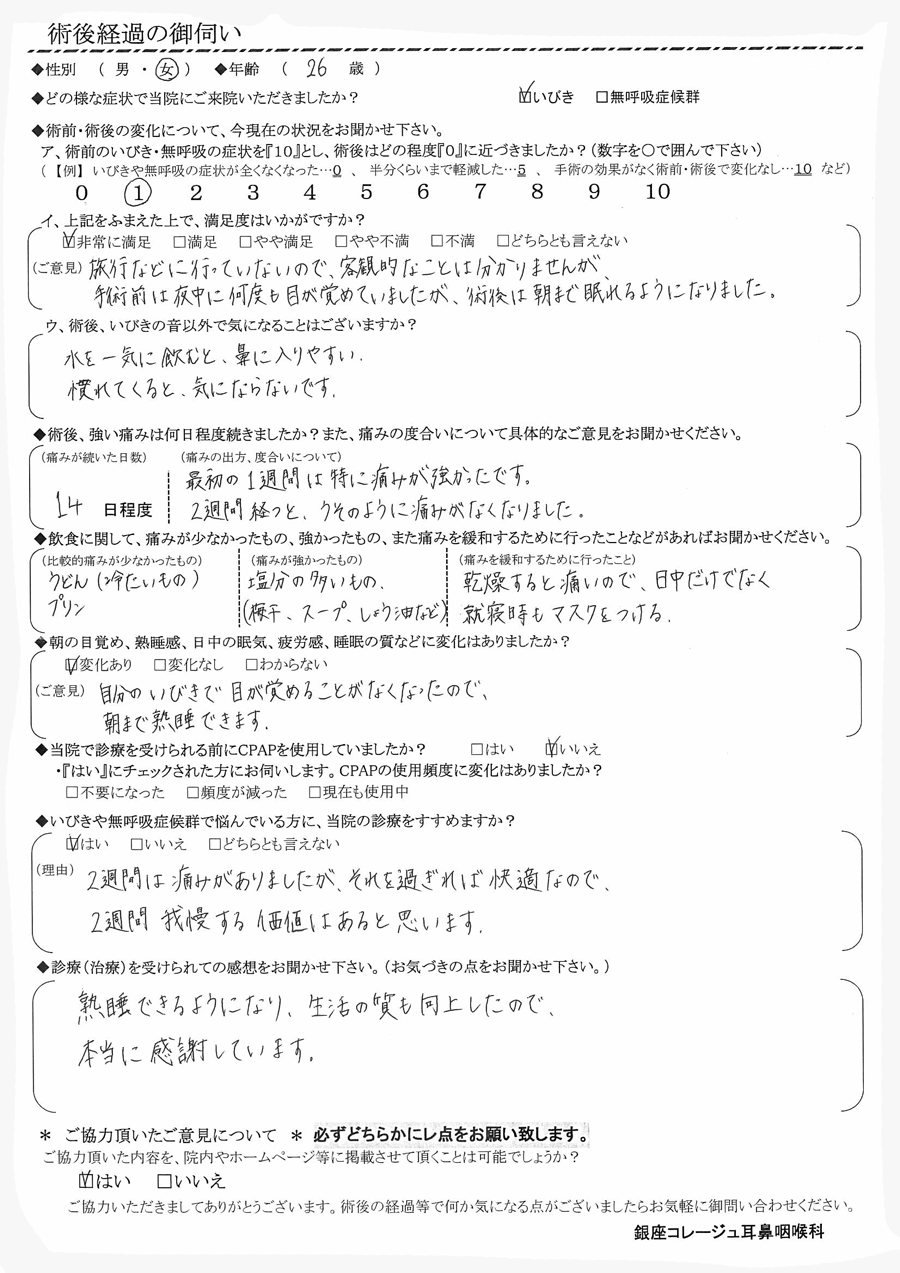 術後経過の御伺い
◆性別 ( 男 ・ 女 ) ◆年齢 ( 26 歳 )
◆どの様な症状で当院にご来院いただきましたか? ☑いびき □無呼吸症候群
◆術前・術後の変化について、今現在の状況をお聞かせ下さい。
ア、術前のいびき・無呼吸の症状を『10』とし、術後はどの程度『0』に近づきましたか?(数字を○で囲んで下さい)
(【例】いびきや無呼吸の症状が全くなくなった…0 、 半分くらいまで軽減した…5 、 手術の効果がなく術前・術後で変化なし…10 など)
0 1 2 3 4 5 6 7 8 9 10
イ、上記をふまえた上で、満足度はいかがですか?
☑非常に満足 □満足 □やや満足 □やや不満 □不満 □どちらとも言えない
(ご意見) 旅行などに行っていないので、客観的なことは分かりませんが、
手術前は夜中に何度も目が覚めていましたが、術後は朝まで眠れるようになりました。
ウ、術後、いびきの音以外で気になることはございますか?
水を一気に飲むと、鼻に入りやすい.
慣れてくると、気にならないです.
◆術後、強い痛みは何日程度続きましたか?また、痛みの度合いについて具体的なご意見をお聞かせください。
(痛みが続いた日数) (痛みの出方、度合いについて)
最初の1週間は特に痛みが強かったです。
14 日程度 2週間経つと、うそのように痛みがなくなりました。
◆飲食に関して、痛みが少なかったもの、強かったもの、また痛みを緩和するために行ったことなどがあればお聞かせください。
(比較的痛みが少なかったもの) (痛みが強かったもの) (痛みを緩和するために行ったこと)
うどん(冷たいもの) 塩分の多いもの. 乾燥すると痛いので、日中だけでなく
プリン (梅干、スープ、しょう油など) 就寝時もマスクをつける.
◆朝の目覚め、熟睡感、日中の眠気、疲労感、睡眠の質などに変化はありましたか?
☑変化あり □変化なし □わからない
(ご意見) 自分のいびきで目が覚めることがなくなったので、
朝まで熟睡できます.
◆当院で診療を受けられる前にCPAPを使用していましたか? □はい ☑いいえ
・『はい』にチェックされた方にお伺いします。CPAPの使用頻度に変化はありましたか?
□不要になった □頻度が減った □現在も使用中
◆いびきや無呼吸症候群で悩んでいる方に、当院の診療をすすめますか?
☑はい □いいえ □どちらとも言えない
(理由) 2週間は痛みがありましたが、それを過ぎれば快適なので、
2週間 我慢する価値はあると思います.
◆診療(治療)を受けられての感想をお聞かせ下さい。(お気づきの点をお聞かせ下さい。)
熟睡できるようになり、生活の質も向上したので、
本当に感謝しています。
＊ ご協力頂いたご意見について ＊ 必ずどちらかにレ点をお願い致します。
ご協力頂いた内容を、院内やホームページ等に掲載させて頂くことは可能でしょうか?
☑はい □いいえ
ご協力いただきましてありがとうございます。術後の経過等で何か気になる点がございましたらお気軽に御問い合わせください。
銀座コレージュ耳鼻咽喉科